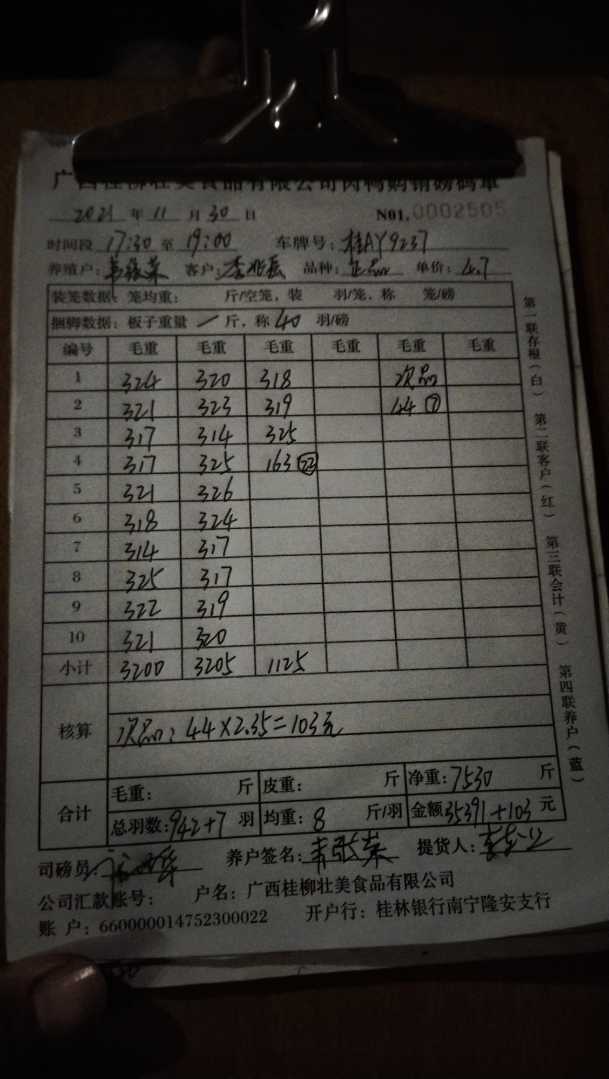 广西桂柳壮美食品有限公司肉鸭购销磅码单
2021 年 11 月 30 日 N01.0002505
时间段 17:30 至 19:00 车牌号：桂AY9237
养殖户： 客户： 品种：正品 单价：4.7
装笼数据：笼均重： 斤/空笼，装 羽/笼，称 笼/磅
捆脚数据：板子重量 一 斤，称 40 羽/磅
编号 毛重 毛重 毛重 毛重 毛重 毛重
1 324 320 318 次品
2 321 323 319 44 ⑦
3 317 314 325
4 317 325 163 ㉒
5 321 326
6 318 324
7 314 317
8 325 317
9 322 319
10 321 320
小计 3200 3205 1125
核算 次品：44×2.35=103元
合计 毛重： 斤 皮重： 斤 净重：7530 斤
总羽数：942+7 羽 均重：8 斤/羽 金额35391+103 元
司磅员 养户签名： 提货人：
公司汇款账号： 户名：广西桂柳壮美食品有限公司
账 户：660000014752300022 开户行：桂林银行南宁隆安支行
第一联存根（白）
第二联客户（红）
第三联会计（黄）
第四联养户（蓝）